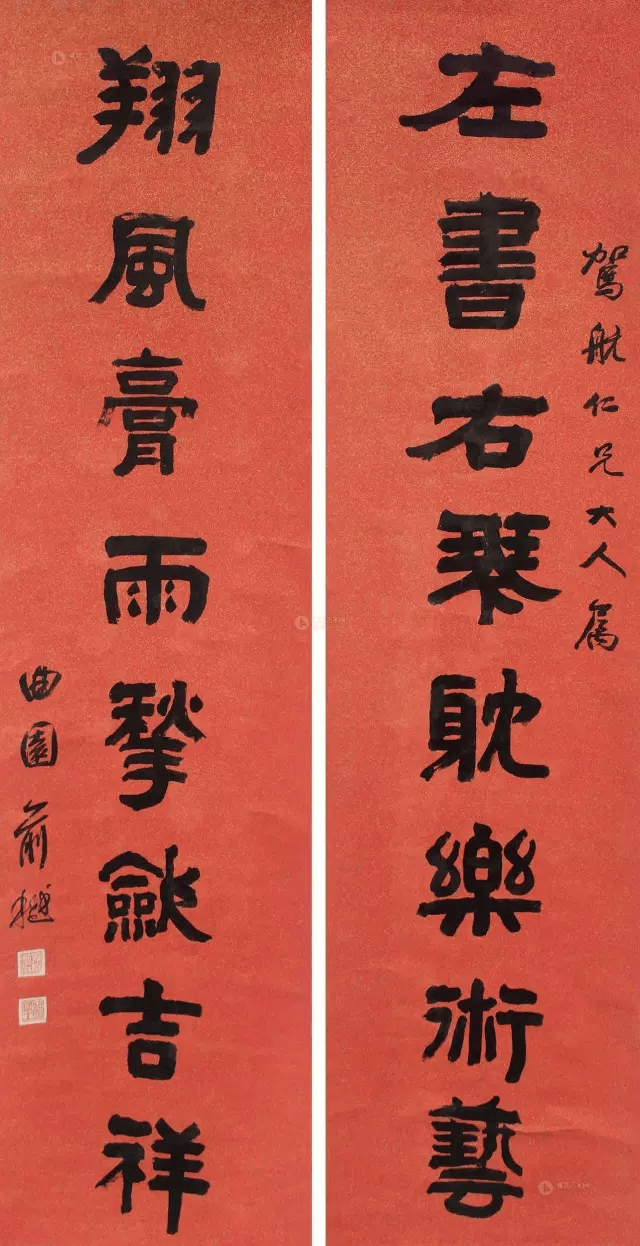 駕航仁兄大人屬
左書右琴躭樂術藝
翔風膏雨揫歛吉祥
曲園俞樾